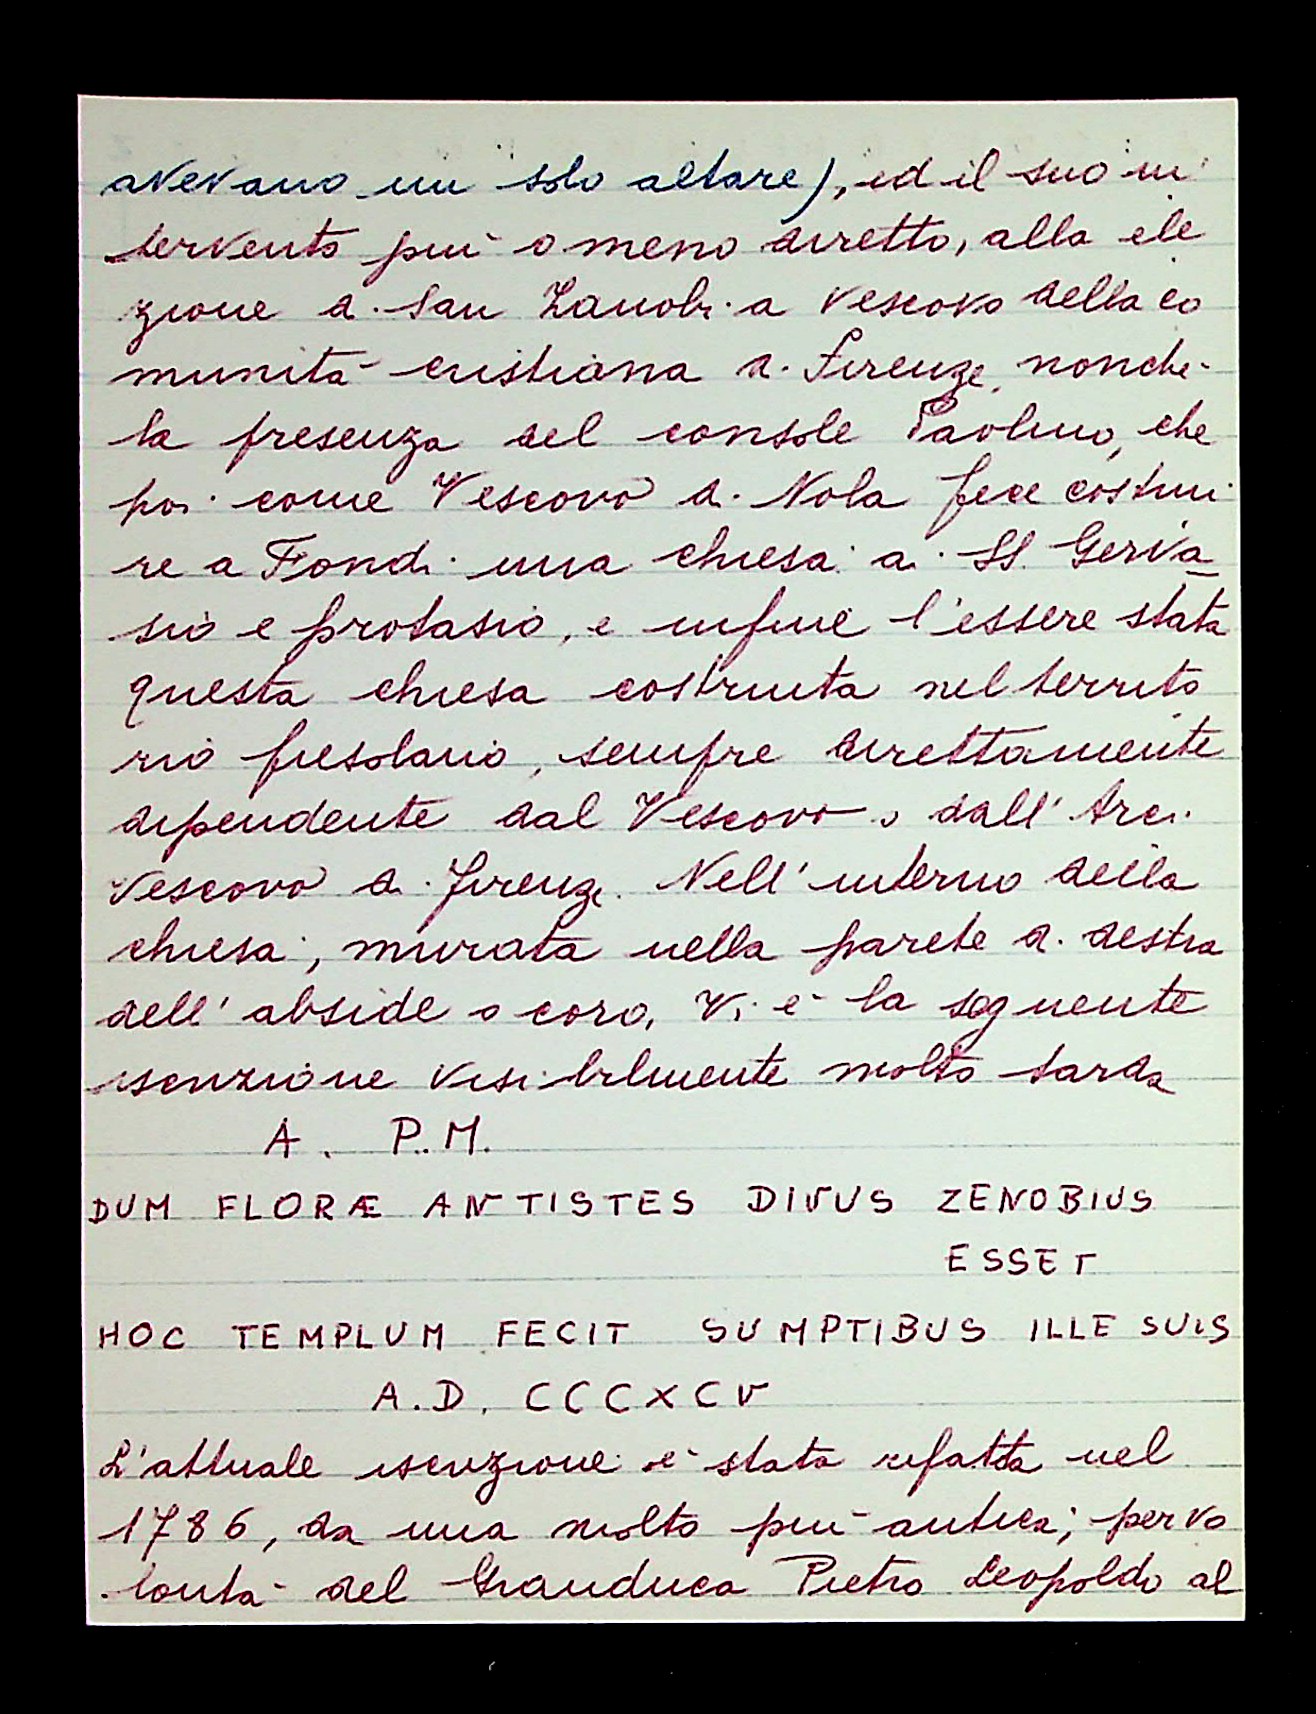 avevano un solo altare), ed il suo in
tervento più o meno diretto, alla ele
zione di San Zanobi a Vescovo della co
munità cristiana di Firenze, nonchè
la presenza del console Paolino, che
poi come Vescovo di Nola fece costrui
re a Fondi una chiesa ai SS. Gerva
sio e protasio, e infine l'essere stata
questa chiesa costruita nel territo
rio fiesolano, sempre direttamente
dipendente dal Vescovo o dall'Arci
Vescovo di Firenze. Nell'interno della
chiesa, murata nella parete di destra
dell'abside o coro, vi è la seguente
iscrizione visibilmente molto tarda
A. P.M.
DUM FLORÆ ANTISTES DIVUS ZENOBIUS
ESSET
HOC TEMPLUM FECIT SUMPTIBUS ILLE SUIS
A.D. CCCXCV
L'attuale iscrizione è stata rifatta nel
1786, da una molto più antica; per vo
lontà del Granduca Pietro Leopoldo al